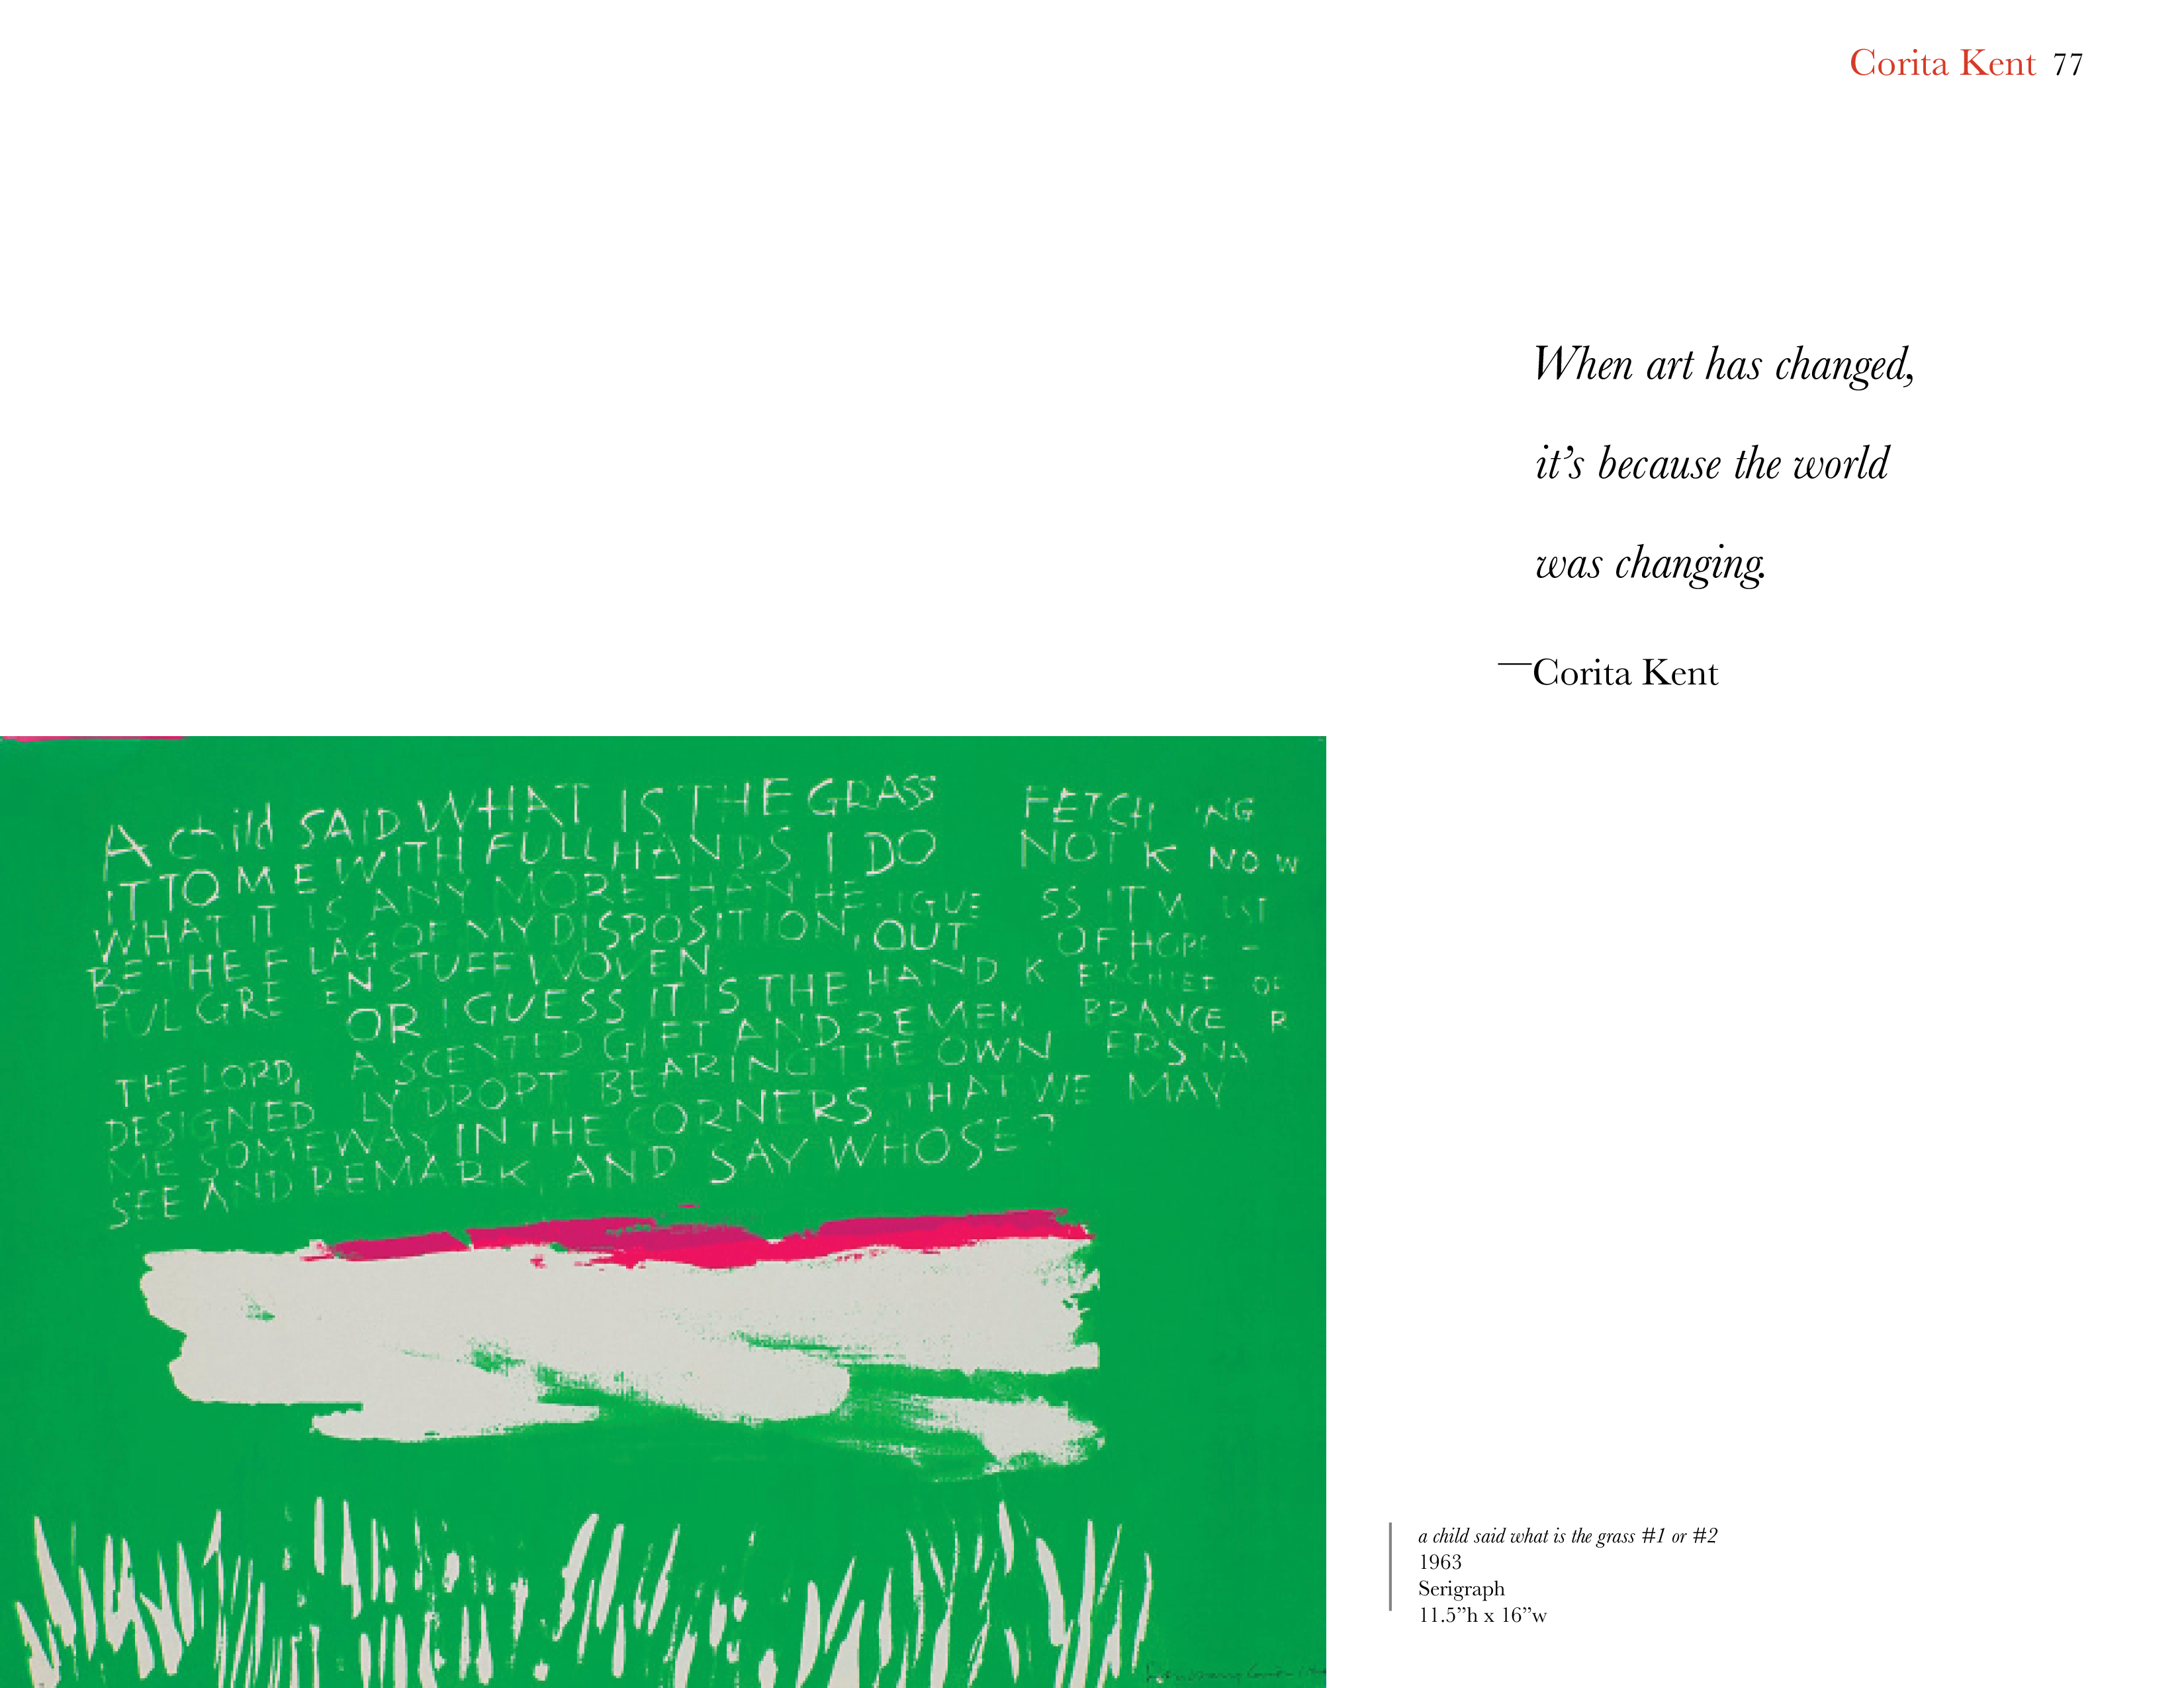 Corita Kent 77
When art has changed,
it’s because the world
was changing.
—Corita Kent
A child SAID WHAT IS THE GRASS FETCH ING
IT TO M E WITH FULL HANDS. I DO NOT K NOW
WHAT IT IS ANY MORE THAN HE. I GUE SS IT M UST
BE THE F LAG OF MY DISPOSITION, OUT OF HOPE –
FUL GRE EN STUFF WOVEN.
OR I GUESS IT IS THE HAND K ERCHIEF OF
THE LORD, A SCENTED GIFT AND REMEM BRANCE R
DESIGNED LY DROPT, BEARING THE OWN ERS NA
ME SOMEWAY IN THE CORNERS, THAT WE MAY
SEE AND REMARK, AND SAY WHOSE?
a child said what is the grass #1 or #2
1963
Serigraph
11.5”h x 16”w